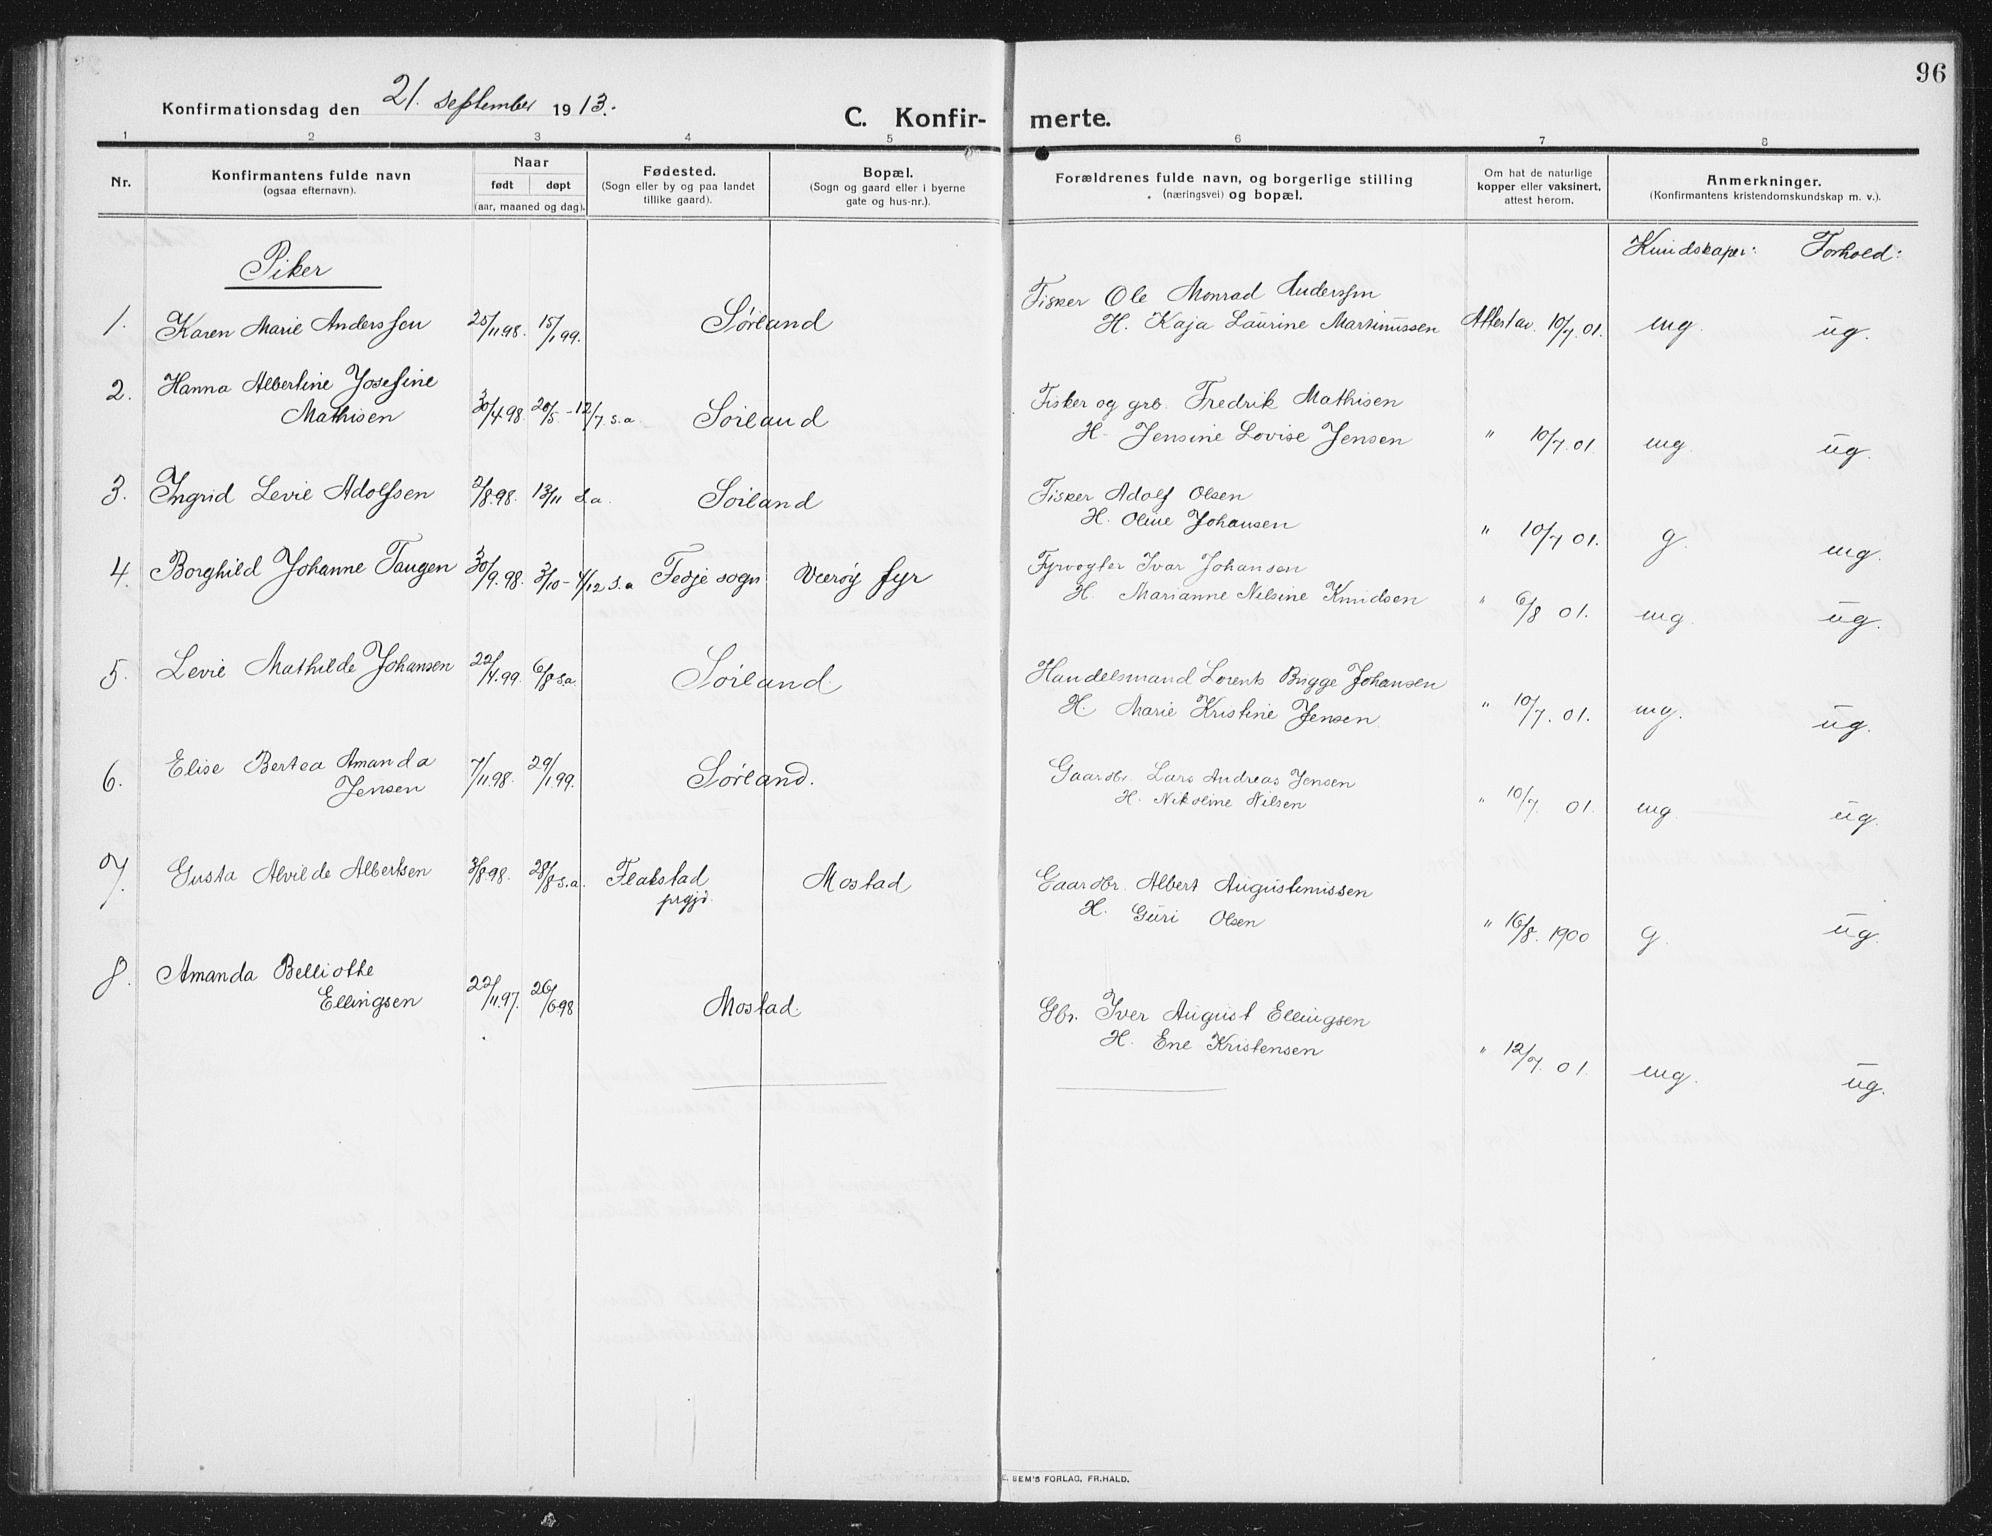 96
Konfirmationsdag den 21. september 1913.
C. Konfir- merte.
1 2 3 4 5 6 7 8
Nr.
Konfirmantens fulde navn
(ogsaa efternavn).
Naar
født døpt
(aar, maaned og dag).
Fødested.
(Sogn eller by og paa landet
tillike gaard).
Bopæl.
(Sogn og gaard eller i byerne
gate og hus-nr.).
Forældrenes fulde navn, og borgerlige stilling
(næringsvei) og bopæl.
Om hat de naturlige
kopper eller vaksinert,
attest herom.
Anmerkninger.
(Konfirmantens kristendomskundskap m. v.).
Kundskaper: Forhold:
Piker
1. Karen Marie Anderssen 25/11.98. 15/1.99. Sørland
Fisker Ole Monrad Anderssen
H. Kaja Laurine Martinussen Attest av. 10/7.01. mg. ug.
2. Hanna Albertine Josefine
Mathisen 30/4.98. 20/5-12/7.s.a. Sørland
Fisker og grb. Fredrik Mathisen
H. Jensine Lovise Jensen " 10/7.01. mg. ug.
3. Ingrid Levie Adolfsen 2/8.98. 13/11 s.a. Sørland
Fisker Adolf Olsen
H. Oline Johansen " 10/7 01. g. mg.
4. Borghild Johanne Taugen 30/9.98. 3/10-4/12 s.a Fedje sogn Værøy fyr
Fyrvogter Ivar Johansen
H. Marianne Nilsine Knudsen " 6/8 01. mg. ug.
5. Levie Mathilde Johansen 22/4.99. 6/8 s.a. Sørland.
Handelsmand Lorents Brigge Johansen
H. Marie Kristine Jensen " 10/7.01. mg. ug.
6. Elise Bertea Amanda
Jensen 7/11.98. 29/1.99. Sørland.
Gaardbr. Lars Andreas Jensen
H. Nikoline Nilsen " 10/7 01. mg. ug.
7. Gusta Alvilde Albertsen 3/8.98. 28/8 s.a. Flakstad
prgjd. Mostad
Gaardbr. Albert Augustinussen
H. Guri Olsen " 16/8.1900 g. ug.
8. Amanda Belliothe
Ellingsen 22/11.97. 26/6.98 Mostad.
Gbr. Iver August Ellingsen
H. Ene Kristensen " 12/7.01. mg. ug.
SEM'S FORLAG, FR.HALD.